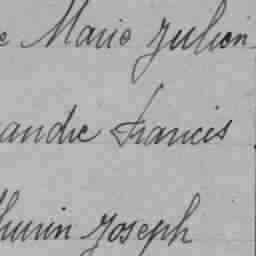 e Marie Julien
andre Francis
thurin Joseph